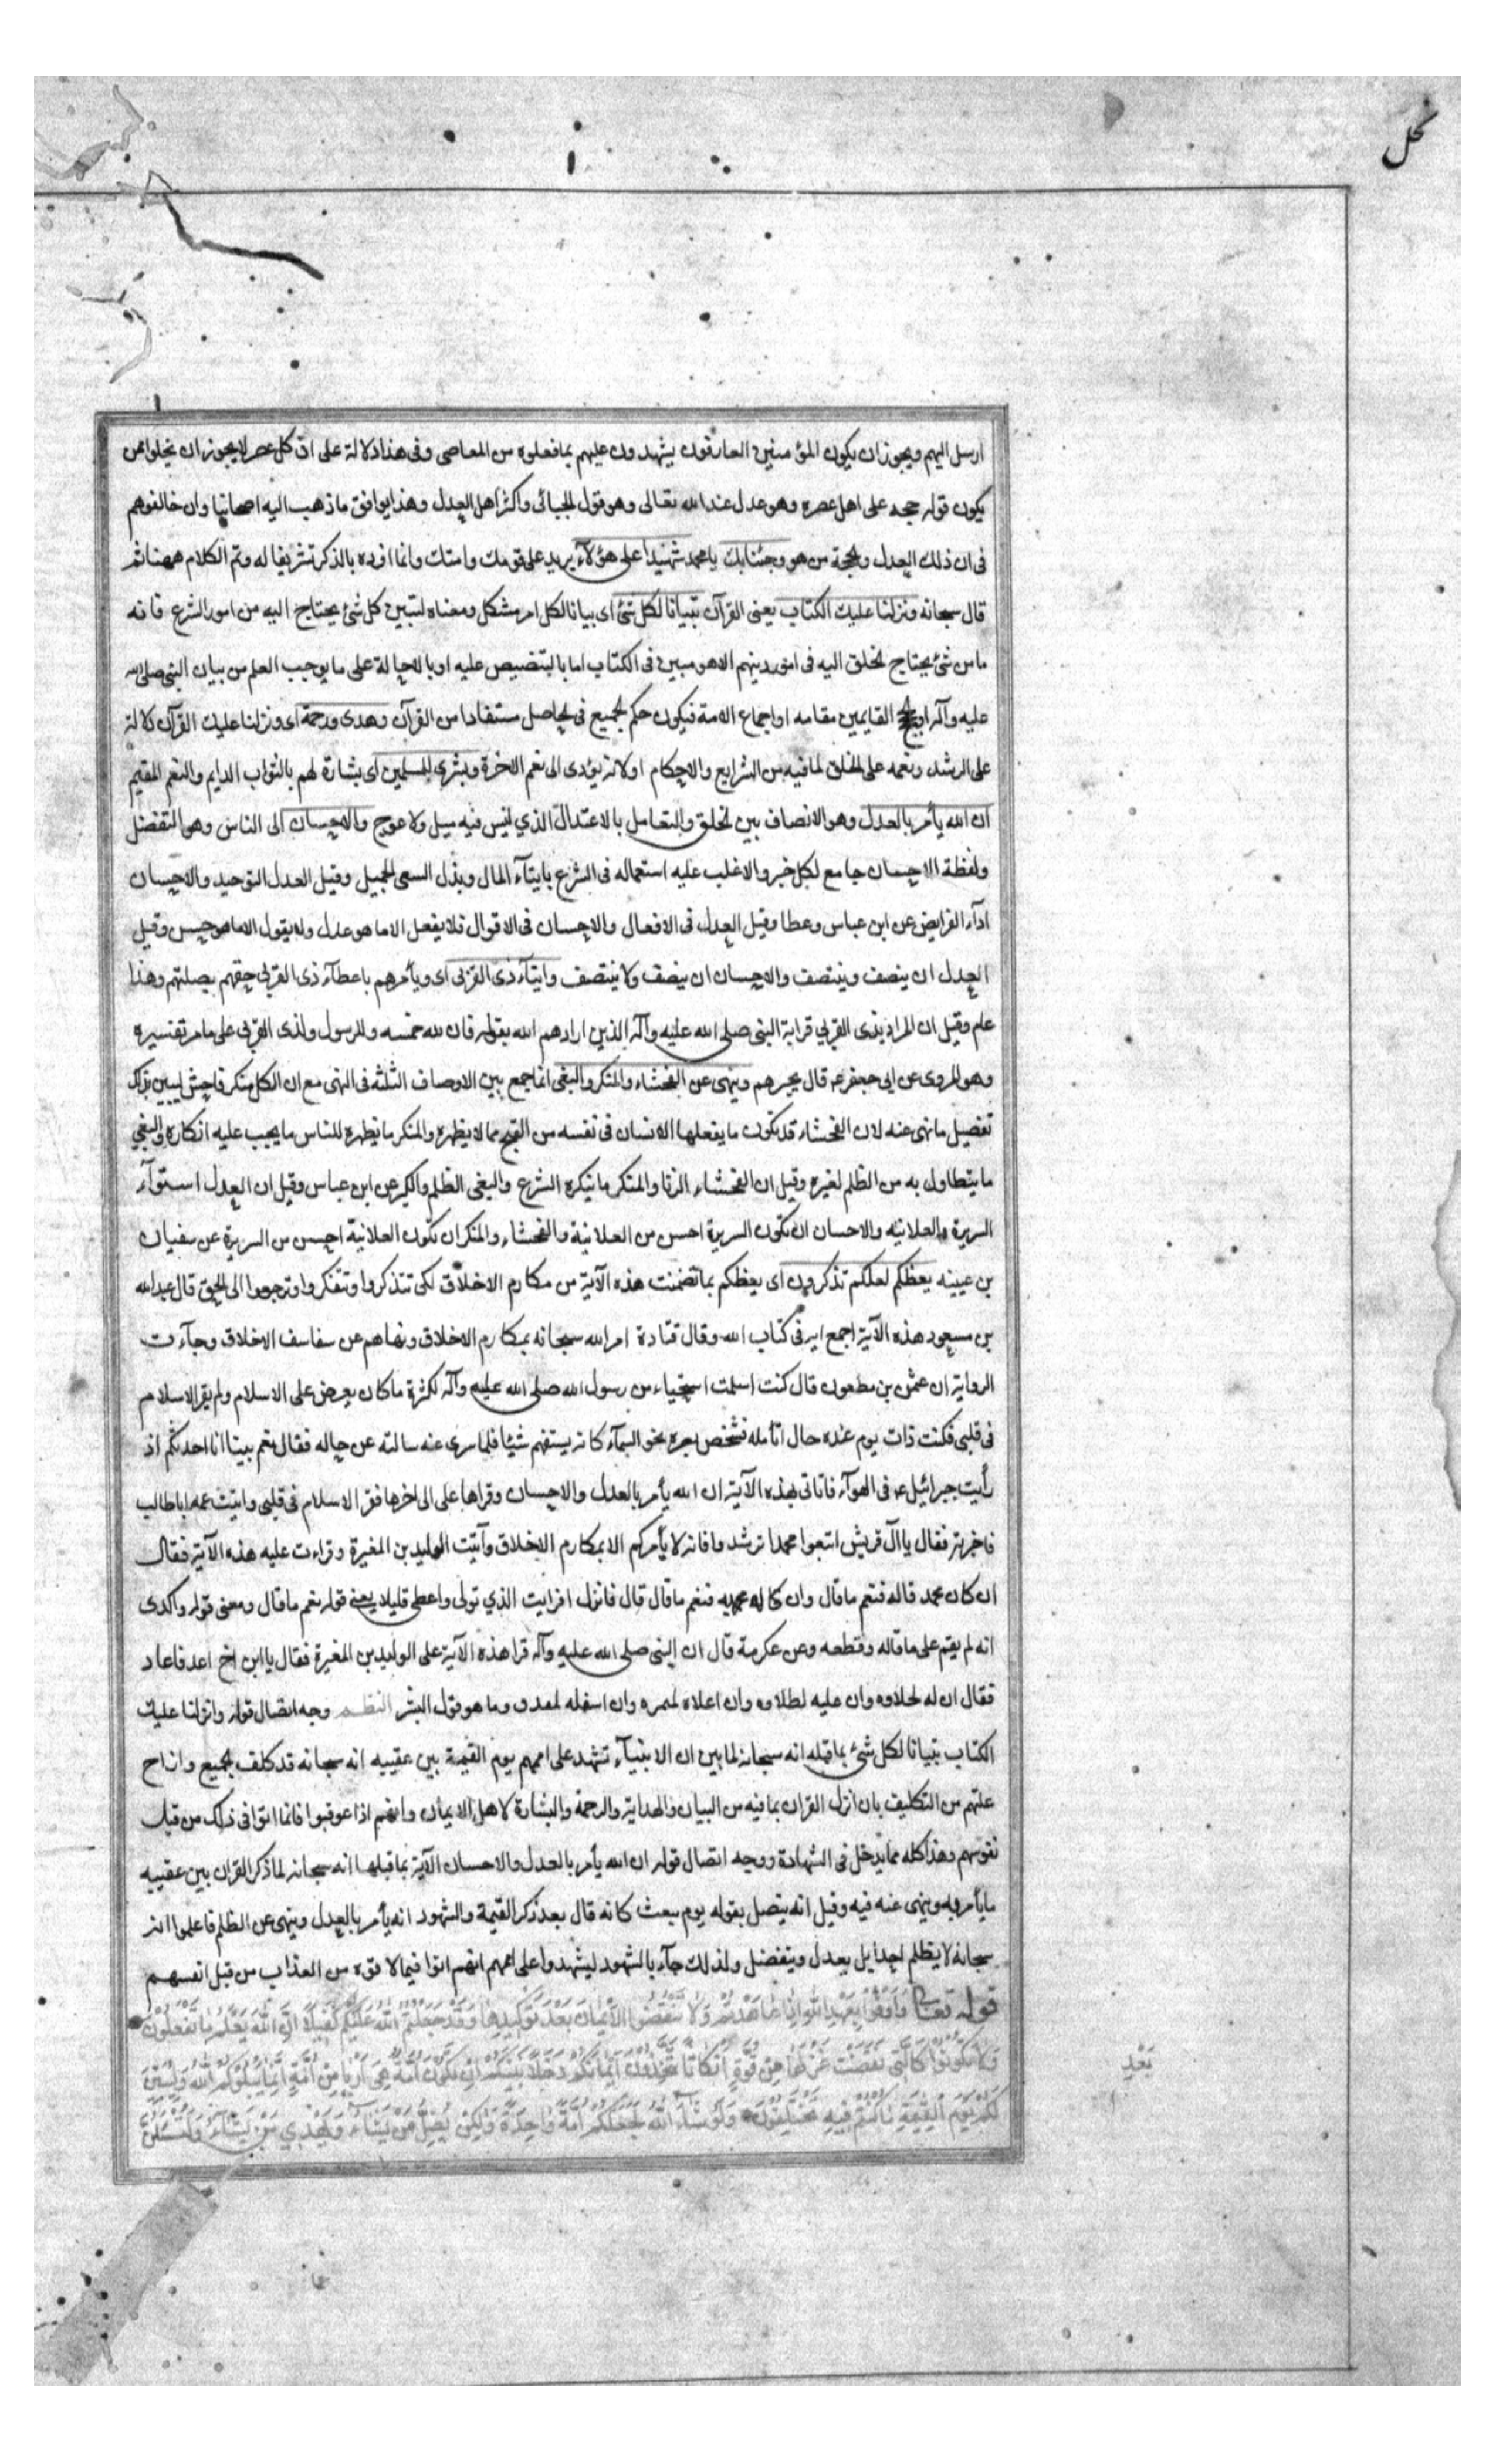 نحل
ارسل اليهم ويجوز ان يكون المؤمنين العارفون يشهدون عليهم بما فعلوه من المعاصى وفى هذا دلالة على ان كل عصر لا يجوز ان يخلوا ممن
يكون قوله حجه على اهل عصره وهو عدل عند الله تعالى وهو قول الجبائى واكثر اهل العدل وهذا يوافق ما ذهب اليه اصحابنا وان خالفوهم
فى ان ذلك العدل والحجة من هو وجئنابك يا محمد شهيدا على هؤلآء يريد على قومك وامتك وانما افرده بالذكر تشريفا له وتم الكلام ههنا ثم
قال سبحانه ونزلنا عليك الكتاب يعنى القرآن تبيانا لكل شئ اى بيانا لكل امر مشكل ومعناه لتبين كل شئ يحتاج اليه من امور الشرع فانه
ما من شئ يحتاج الخلق اليه فى امور دينهم الا هو مبين فى الكتاب اما بالتنصيص عليه او بالاحالة على ما يوجب العلم من بيان النبى صلى الله
عليه وآله او الحجج القايمين مقامه او اجماع الامة فيكون حكم الجميع فى الحاصل مستفادا من القرآن وهدى ورحمة اى ونزلنا عليك القرآن دلالة
على الرشد ونعمه على الخلق لما فيه من الشرايع والاحكام او لانه يؤدى الى نعم الاخرة وبشرى للمسلمين اى بشارة لهم بالثواب الدايم والنعم المقيم
ان الله يأمر بالعدل وهو الانصاف بين الخلق والتعامل بالاعتدال الذي ليس فيه ميل ولا عوج والاحسان الى الناس وهو التفضل
ولفظة الاحسان جامع لكل خير والاغلب عليه استعماله فى الشرع بايتآء المال وبذل السعى الجميل وقيل العدل التوحيد والاحسان
ادآء الفرايض عن ابن عباس وعطا وقيل العدل فى الافعال والاحسان فى الاقوال فلا يفعل الا ما هو عدل ولا يقول الا ما هو حسن وقيل
العدل ان ينصف وينتصف والاحسان ان ينصف ولا ينتصف وايتآء ذى القربى اى ويأمرهم باعطآء ذى القربى حقهم بصلتهم وهذا
عام وقيل ان المراد بذى القربي قرابة النبى صلى الله عليه وآله الذين ارادهم الله بقوله فان لله خمسه وللرسول ولذى القربى على ما مر تفسيره
وهو المروى عن ابى جعفر ع قال نحن هم وينهى عن الفحشاء والمنكر والبغى انما جمع بين الاوصاف الثلثه فى النهى مع ان الكل منكر فاحش ليبين بذلك
تفصيل ما نهى عنه لان الفحشاء قد تكون ما يفعلها الانسان فى نفسه من القبيح مما لا يظهره والمنكر ما يظهره للناس ما يجب عليه انكاره والبغي
ما يتطاول به من الظلم لغيره وقيل ان الفحشاء الزنا والمنكر ما ينكره الشرع والبغى الظلم والكبر عن ابن عباس وقيل ان العدل استوآء
السريرة والعلانيه والاحسان ان تكون السريرة احسن من العلانية والفحشاء والمنكر ان تكون العلانية احسن من السريرة عن سفيان
بن عيينه يعظكم لعلكم تذكرون اى يعظكم بما تضمنت هذه الآية من مكارم الاخلاق لكى تتذكروا وتتفكروا وترجعوا الى الحق قال عبد الله
بن مسعود هذه الآية اجمع ايه فى كتاب الله وقال قتادة امر الله سبحانه بمكارم الاخلاق ونهاهم عن سفاسف الاخلاق وجآءت
الرواية ان عثمن بن مظعون قال كنت اسلمت استحياء من رسول الله صلى الله عليه وآله لكثرة ما كان يعرض على الاسلام ولم يقر الاسلام
فى قلبى فكنت ذات يوم عنده حال تأمله فشخص بصره نحو السمآء كانه يستفهم شيئا فلما سرى عنه سالته عن حاله فقال نعم بينا انا احدثكم اذ
رأيت جبرائيل ع فى الهوآء فاتانى بهذه الآية ان الله يأمر بالعدل والاحسان وقراها على الى اخرها فقر الاسلام فى قلبى واتيت عمه ابا طالب
فاخبرته فقال يا آل قريش اتبعوا محمدا ترشدوا فانه لا يأمركم الا بمكارم الاخلاق وآتيت الوليد بن المغيرة وقراءت عليه هذه الآية فقال
ان كان محمد قاله فنعم ما قال وان كا له ربه فنعم ما قال قال فانزل افرايت الذي تولى واعطى قليلا يعنى قوله نعم ما قال ومعنى قوله واكدى
انه لم يقم على ما قاله وقطعه وعن عكرمة قال ان النبى صلى الله عليه وآله قرا هذه الآية على الوليد بن المغيرة فقال يا ابن اخ اعد فاعاد
فقال ان له لحلاوه وان عليه لطلاوه وان اعلاه لمثمره وان اسفله لمغدق وما هو قول البشر النظم وجه اتصال قوله وانزلنا عليك
الكتاب تبيانا لكل شئ بما قبله انه سبحانه لما بين ان الانبيآء تشهد على اممهم يوم القيمة بين عقيبه انه سبحانه قد كلف الجميع وازاح
علتهم من التكليف بان انزل القران بما فيه من البيان والهداية والرحمة والبشارة لاهل الايمان وانهم اذا عوقبوا فانما اتوا فى ذلك من قبل
نفوسهم وهذا كله مما يدخل فى الشهادة ووجه اتصال قوله ان الله يأمر بالعدل والاحسان الآية بما قبلها انه سبحانه لما ذكر القران بين عقيبه
ما يأمر به وينهى عنه فيه وقيل انه يتصل بقوله يوم يبعث كانه قال بعد ذكر القيمة والشهود انه يأمر بالعدل وينهى عن الظلم فاعلموا انه
سبحانه لا يظلم احدا بل يعدل ويتفضل ولذلك جآء بالشهود ليشهدوا على اممهم انهم اتوا فيما لاقوه من العذاب من قبل انفسهم
قوله تعالى وَاَوْفُوا بِعَهْدِ اللهِ اِذا عاهَدْتُمْ وَلا تَنْقُضُوا الْاَيْمانَ بَعْدَ تَوْكِيدِها وَقَدْ جَعَلْتُمُ اللهَ عَلَيْكُمْ كَفِيلاً اِنَّ اللهَ يَعْلَمُ ما تَفْعَلُونَ
وَلا تَكُونُوا كَالَّتِى نَقَضَتْ غَزْلَها مِنْ قُوَّةٍ اَنْكاثاً تَتَّخِذُونَ اَيْمانَكُمْ دَخَلاً بَيْنَكُمْ اَنْ تَكُونَ اُمَّةٌ هِيَ اَرْبى مِنْ اُمَّةٍ اِنَّما يَبْلُوكُمُ اللهُ وَلَيُبَيِّنَنَّ
بَعْدِ
لَكُمْ يَوْمَ الْقِيمَةِ ما كُنْتُمْ فِيهِ تَخْتَلِفُونَ وَلَوْ شاءَ اللهُ لَجَعَلَكُمْ اُمَّةً واحِدَةً وَلكِنْ يُضِلُّ مَنْ يَشاءُ وَيَهْدِي مَنْ يَشاءُ وَلَتُسْئَلُنَّ